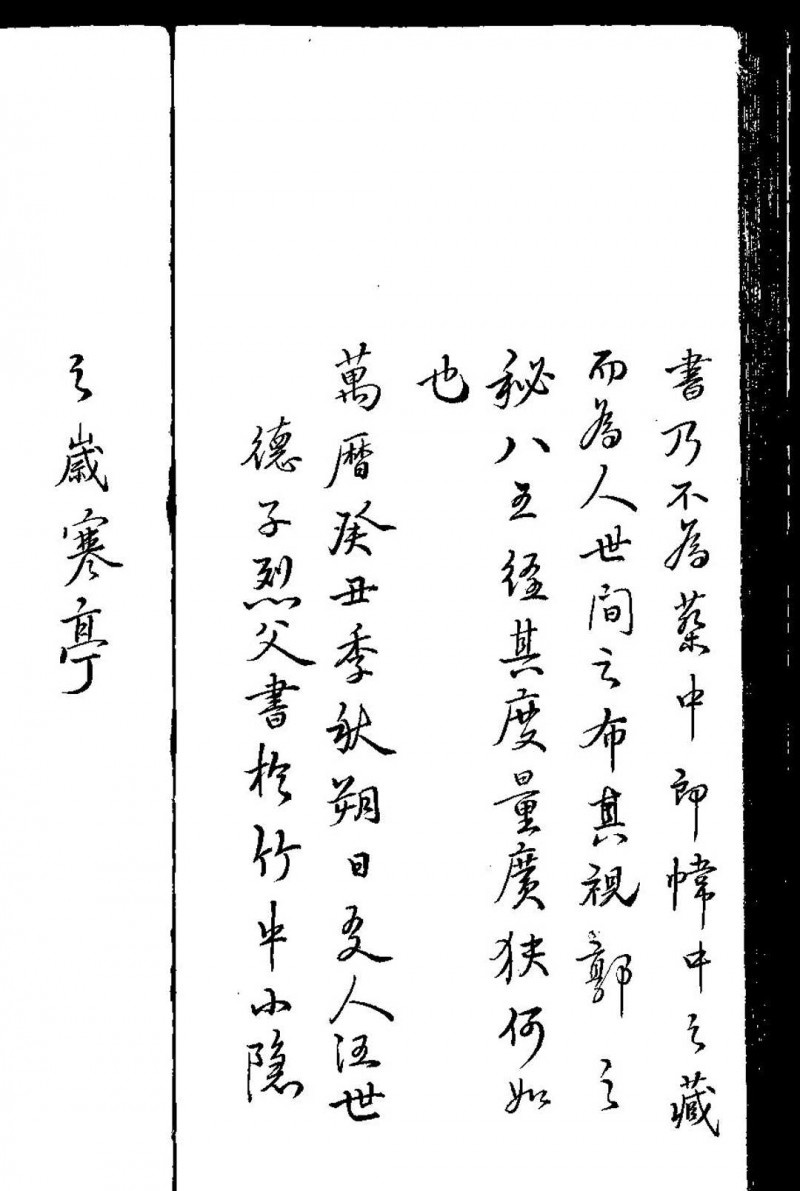 書乃不為蔡中郎幃中之藏
而為人世間之布其視郭之
秘八五經其度量廣狹何如
也
萬曆癸丑季秋朔日友人汪世
德子烈父書於竹中小隱
之歲寒亭